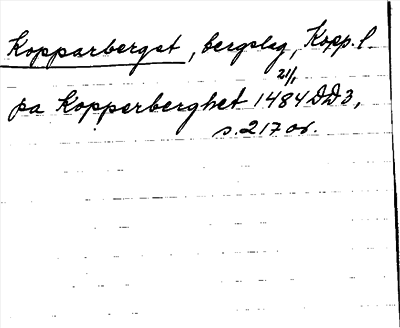 Kopparbergst, bergslag, Kopp. l.
21/1
pa Kopperberghet 1484 DD 3,
s. 217 or.